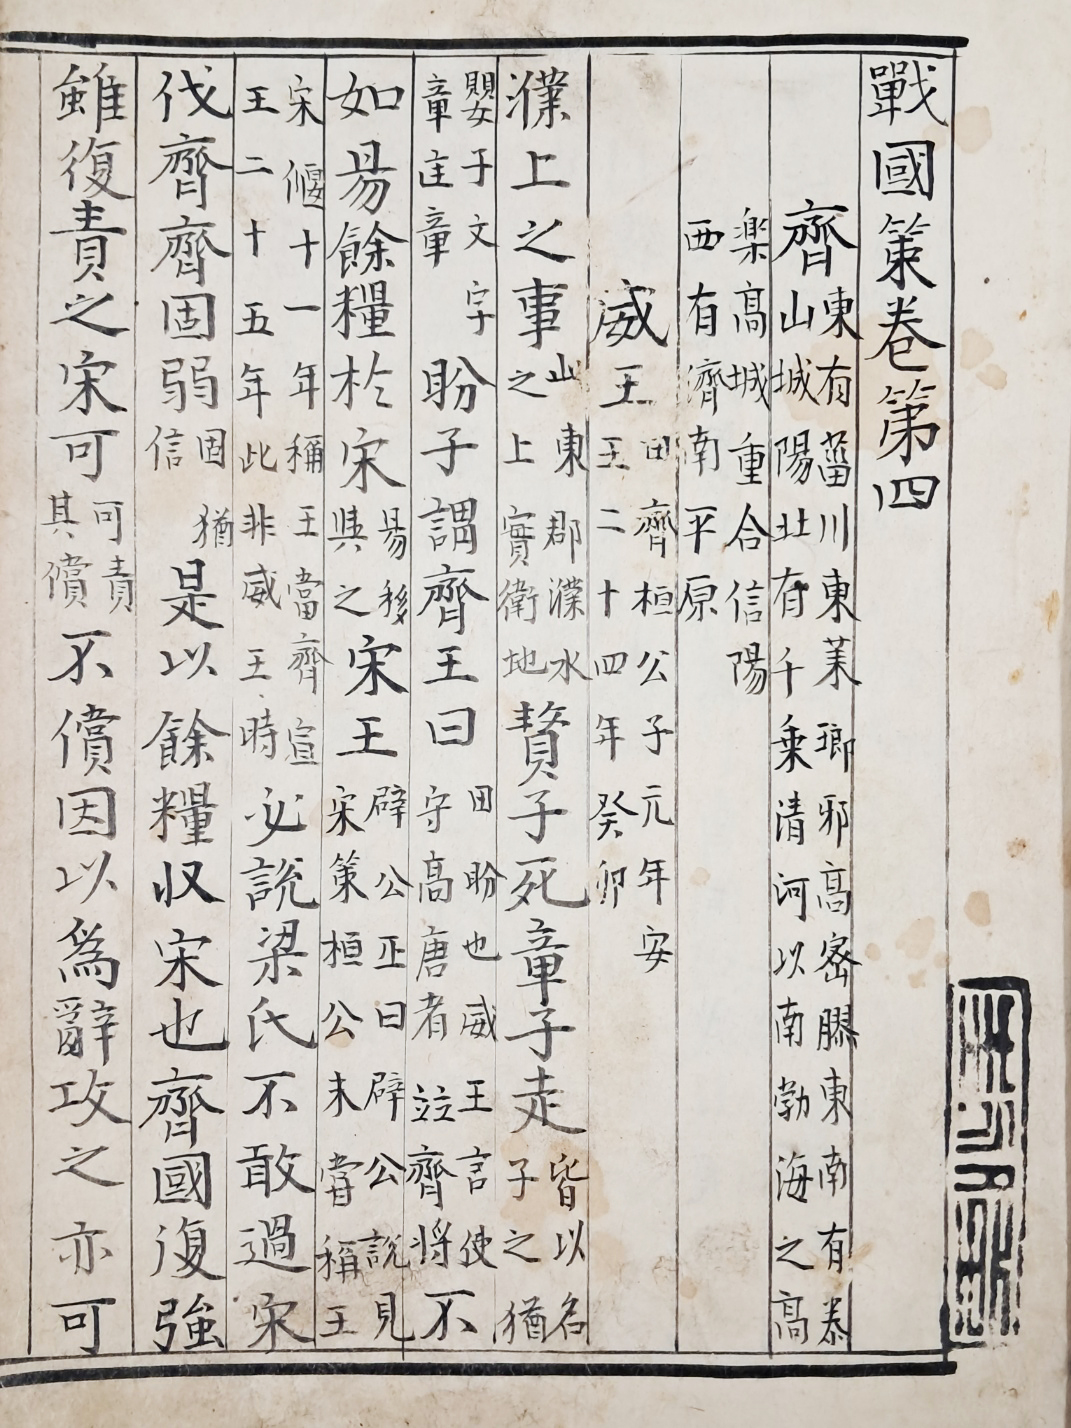 戰國策卷第四
齊東有菑川東萊瑯邪高密膠東南有泰
山城陽北有千乗清河以南勃海之高
樂高城重合信陽
西有濟南平原
威王田齊桓公子元年安
王二十四年癸卯
濮上之事此東郡濮水之上實衛地贅子死章子走皆以名子之猶
嬰子文字章匡章盼子謂齊王曰田盼也威王言使守高唐者並齊將不
如昜餘糧於宋昜移與之宋王辟公正曰辟公說見宋策桓公未嘗稱王
宋偃十一年稱王當齊宣王二十五年此非威王時必說梁氏不敢過宋
伐齊齊固弱固猶信是以餘糧収宋也齊國復強
雖復責之宋可可責其償不償因以爲辭攻之亦可